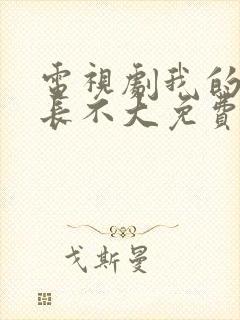 電視劇我的
長不大免費
戈斯曼